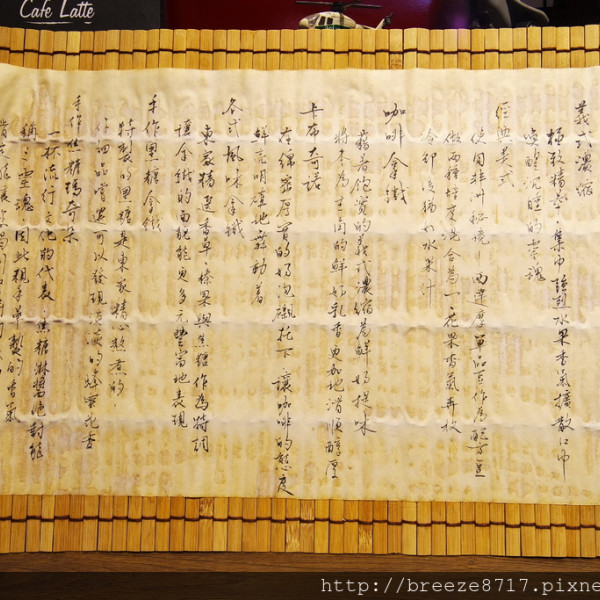 Cafe Latte
義式濃縮
極致精萃,集中強烈水果香氣擴散口中
喚醒沉睡的靈魂
經典美式
使用非洲秘境
做兩種烘焙混合為一,花果香氣奔放
冷卻後猶如水果汁
咖啡拿鐵
藉著飽實的義式濃縮為鮮奶提味
將本為主角的鮮奶乳香更加地滑順醇厚
卡布奇諾
在綿密厚實的奶泡襯托下讓咖啡的態度
鮮亮明媚地舞動著
各式風味拿鐵
東家精選香草、榛果與焦糖作為特調
讓拿鐵的面貌能更多元豐富地表現
手作黑糖拿鐵
特製的黑糖是東家精心熬煮的
仔細品嚐還可以發現淡淡的蜂蜜花香
手作焦糖瑪奇朵
一杯流行文化的代表,焦糖淋醬絕對能
稱之靈魂,因此親手熬製的香氣
http://breeze8717.pixne